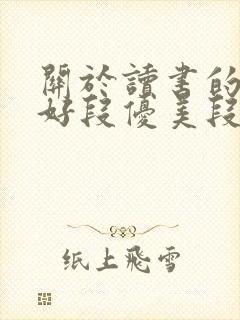 關於讀書的
好段優美段
纸上飛雪